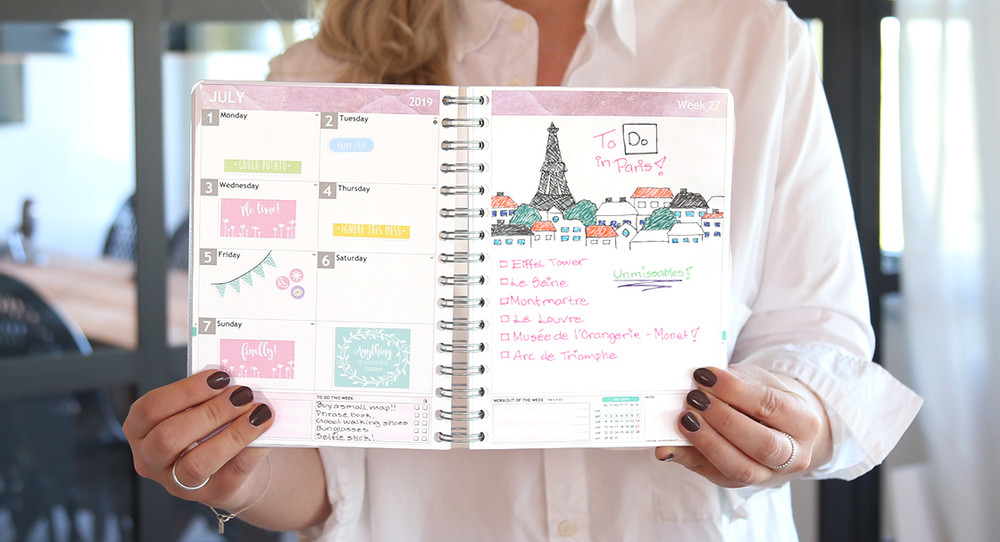 JULY
2019
1 Monday
2 Tuesday
ENJOY LIFE!
•COUCH POTATO•
3 Wednesday
4 Thursday
Me time!
•IGNORE THIS MESS•
5 Friday
6 Saturday
7 Sunday
finally!
Anything
TO DO THIS WEEK
Buy a small map!!
Phrase book
Good walking shoes
Sunglasses
Selfie stick!
Week 27
To Do
in
Paris!
Eiffel Tower
Le Seine
Montmartre
Le Louvre
Musée de l'Orangerie - Monet!
Arc de Triomphe
Unmissables!
WORKOUT OF THE WEEK
NOTES